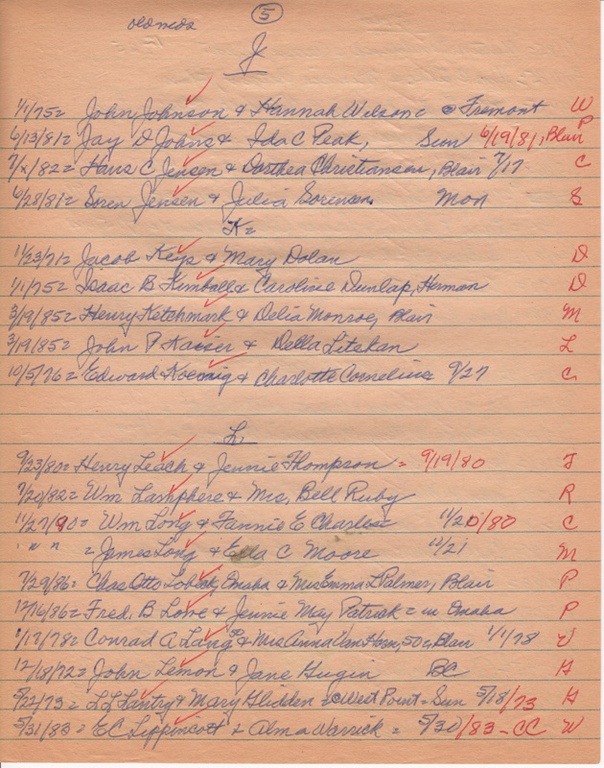 5
J
1/1/75= John Johnson & Hannah Wilson = @ Fremont W
6/13/81= Jay D Johns & Ida C Peak, Sun 6/19/81, Blair P
7/x/82= Hans C Jensen & Dorthea Christianson, Blair 7/17 C
6/28/81= Soren Jensen & Julia Sorensen, Mon S
K=
11/23/71= Jacob Keys & Mary Dolan D
1/1/75= Isaac B Kimball & Caroline Dunlap, Herman D
3/19/85= Henry Ketchmark & Delia Monroe, Blair M
3/19/85= John P Kaiser & Della Litskan L
10/5/76= Edward Koenig & Charlotte Cornelius 9/27 C
L.
9/23/80= Henry Leach & Jennie Thompson = 9/19/80 T
7/20/82= Wm Lamphere & Mrs, Bell Ruby R
11/27/90= Wm Long & Fannie E Charles= 11/20/80 C
" " " = James Long & Ella C Moore 10/21 M
7/29/86= Chas Otto Lobeck, Omaha & Mrs Emma L Palmer, Blair P
12/16/86= Fred. B Lowe & Jennie May Patrick = in Omaha P
1/17/78= Conrad A Lang 50 & Mrs Anna Van Horn, 50 = Blair 1/1/78 V
12/18/72= John Lemon & Jane Gugin BC H
5/21/73= L L Lantry & Mary Glidden = @ West Point = Sun 5/18/73 H
5/31/83= E C Lippincott & Alma Warrick = 5/30/83 - CC W